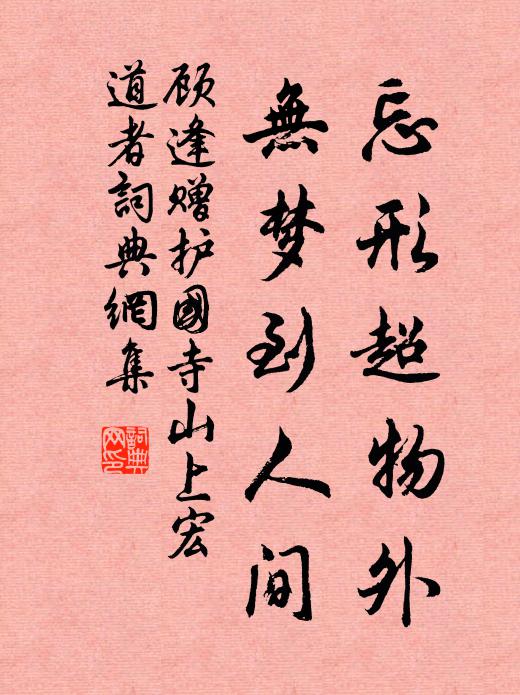 忘形超物外
無梦到人间
顾逢赠护國寺山上宏
道者詞典網集
詞典
网印